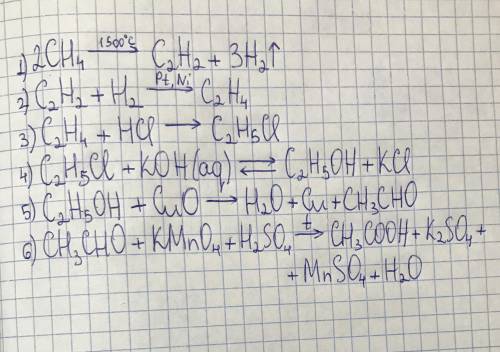 1) 2CH₄ →(1500°C) C₂H₂ + 3H₂↑
2) C₂H₂ + H₂ →(Pt, Ni) C₂H₄
3) C₂H₄ + HCl → C₂H₅Cl
4) C₂H₅Cl + KOH(aq) ⇄ C₂H₅OH + KCl
5) C₂H₅OH + CuO → H₂O + Cu + CH₃CHO
6) CH₃CHO + KMnO₄ + H₂SO₄ →(t) CH₃COOH + K₂SO₄ +
+ MnSO₄ + H₂O